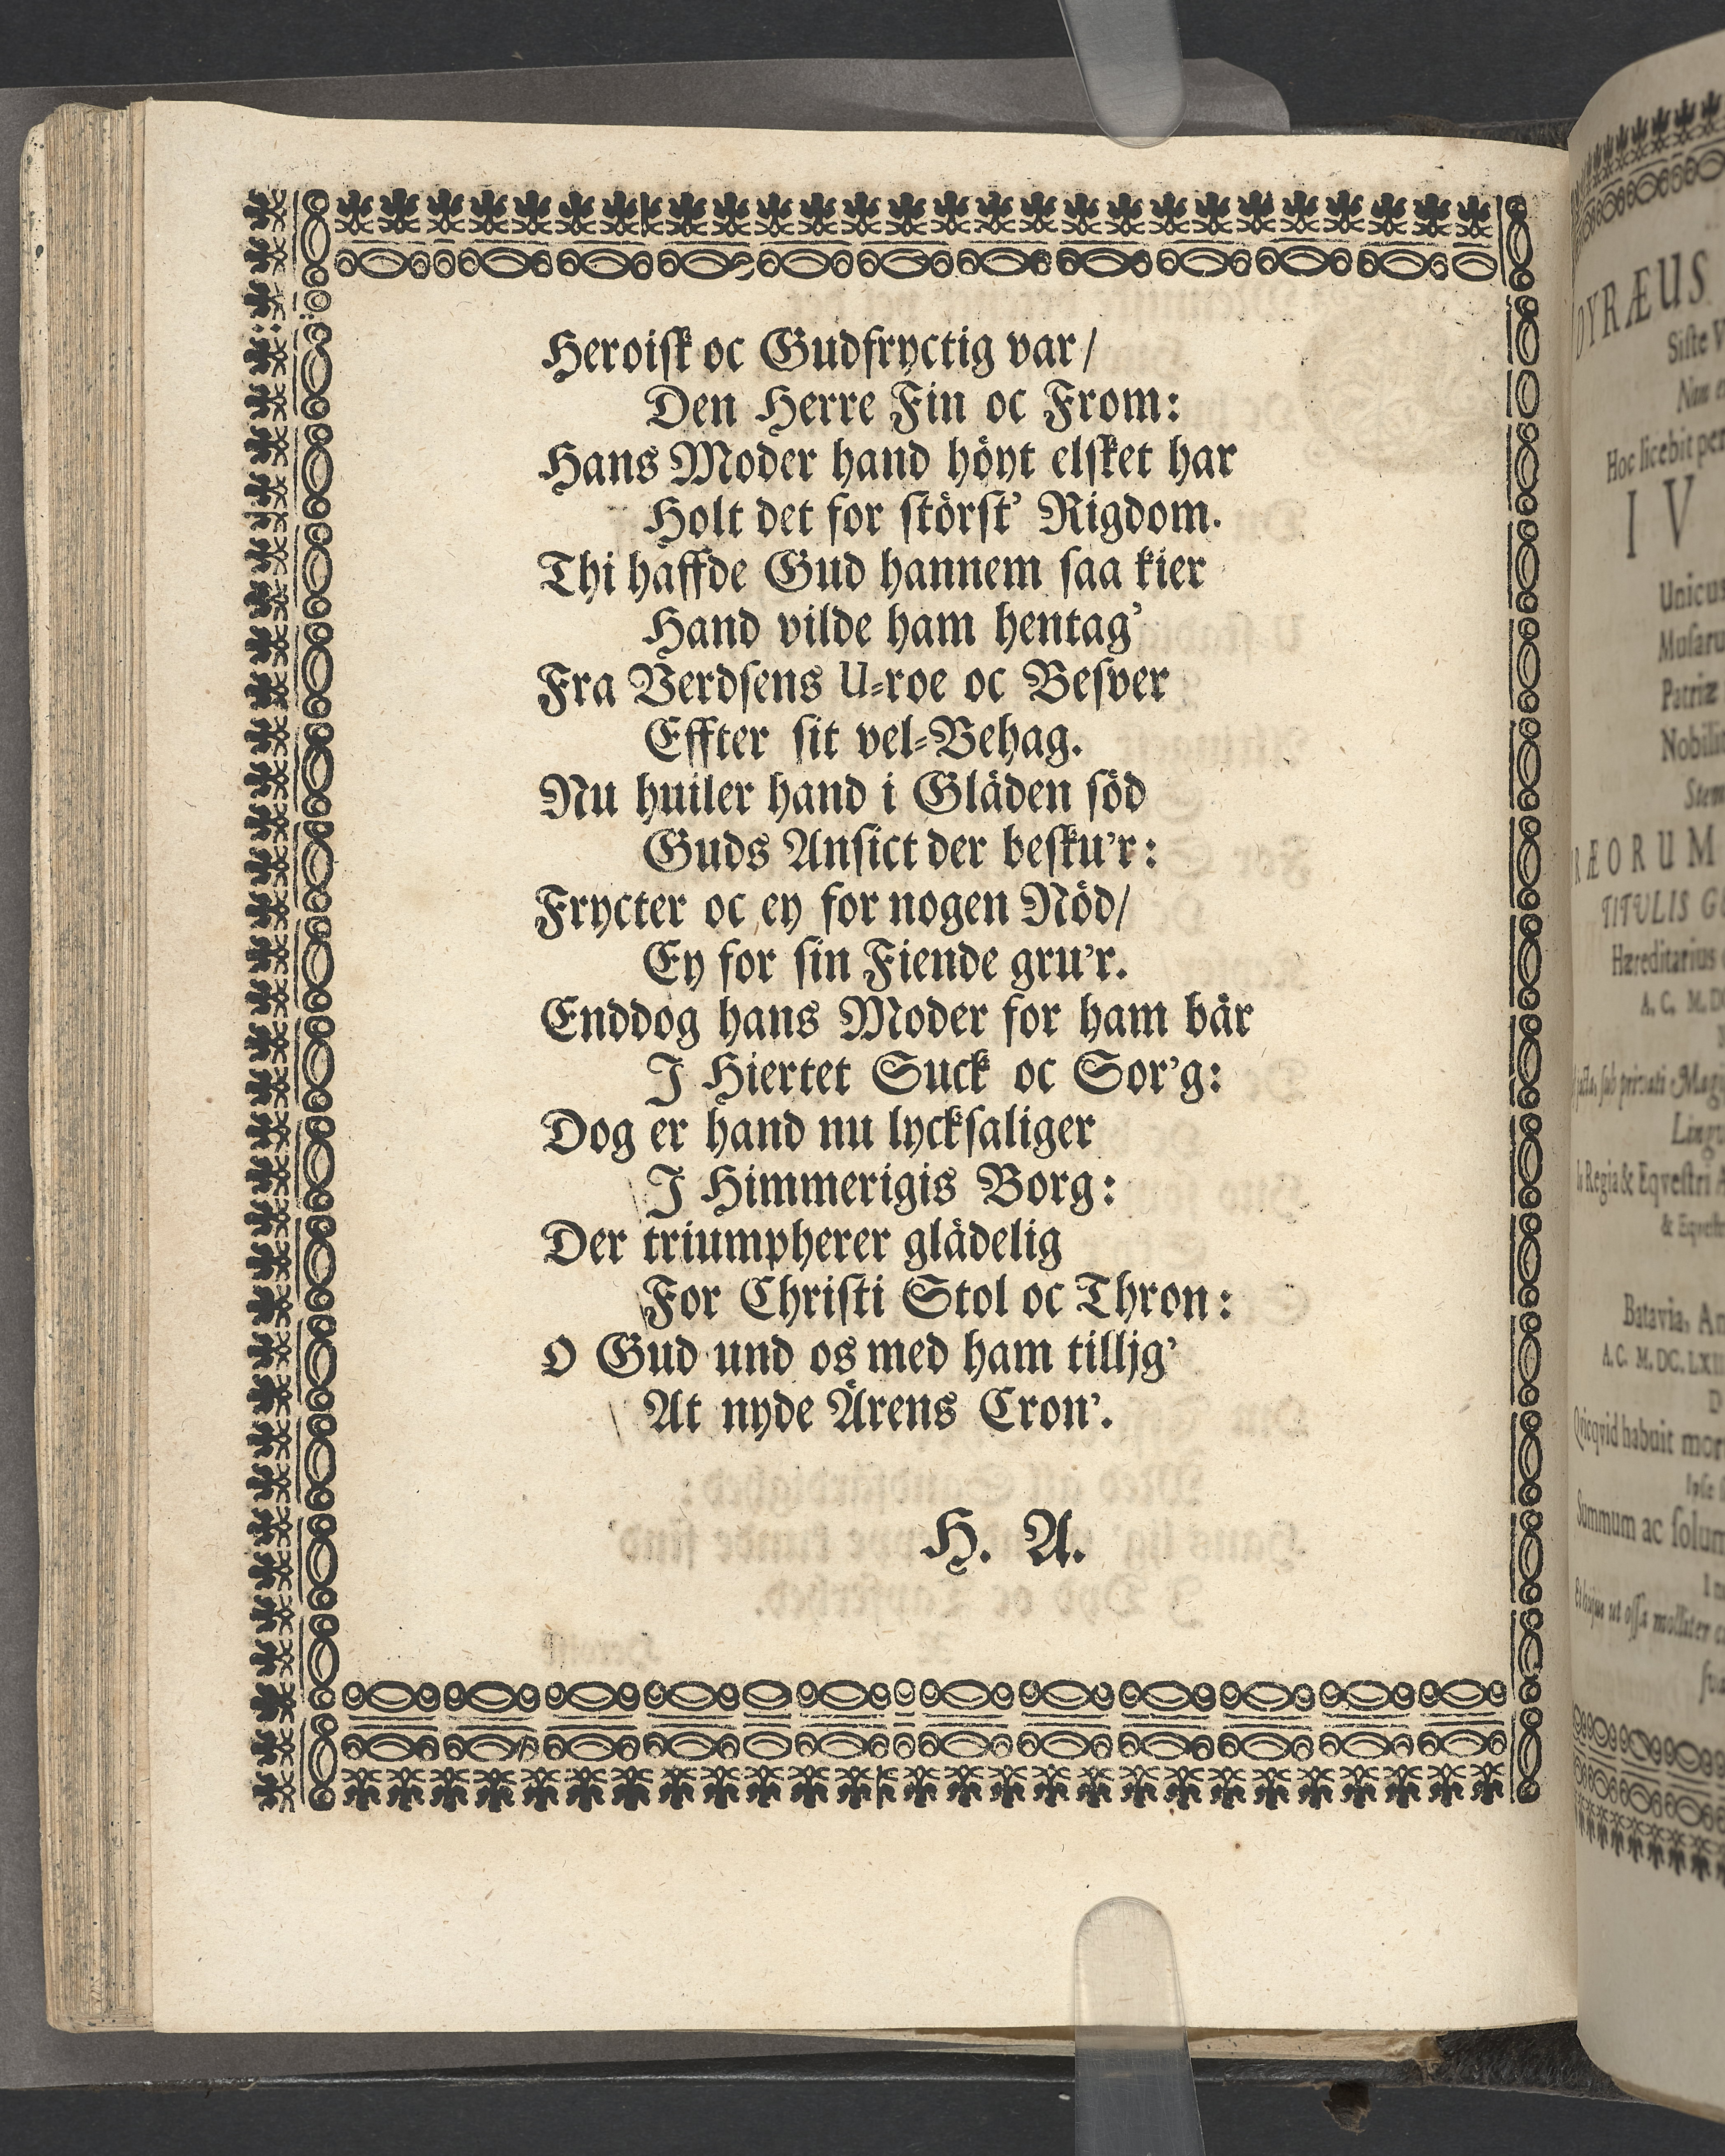 Heroiſk oc Gudfryctig var/
Den Herre Fin oc From:
Hans Moder hand höyt elſket har
Holt det for ſtörſt’ Rigdom.
Thi haffde Gud hannem ſaa kier
Hand vilde ham hentag’
Fra Verdſens U-roe oc Beſver
Effter ſit vel-Behag.
Nu huiler hand i Gläden ſöd
Guds Anſict der beſku’r:
Frycter oc ey for nogen Nöd/
Ey for ſin Fiende gru’r.
Enddog hans Moder for ham bär
J Hiertet Suck oc Sor’g:
Dog er hand nu lyckſaliger
J Himmerigis Borg:
Der triumpherer glädelig
For Chriſti Stol oc Thron:
O Gud und os med ham tilljg’
At nyde Ärens Cron’.
H. A.
DYRÆUS
Siſte
Hoc licebit
I V
Unicus
Patriæ
RÆORUM
TITULIS
Hæreditarius
A. C.
Regia & Eqveſtri
Batavia,
A.C. M.DC.LXII
habuit
Summum ac